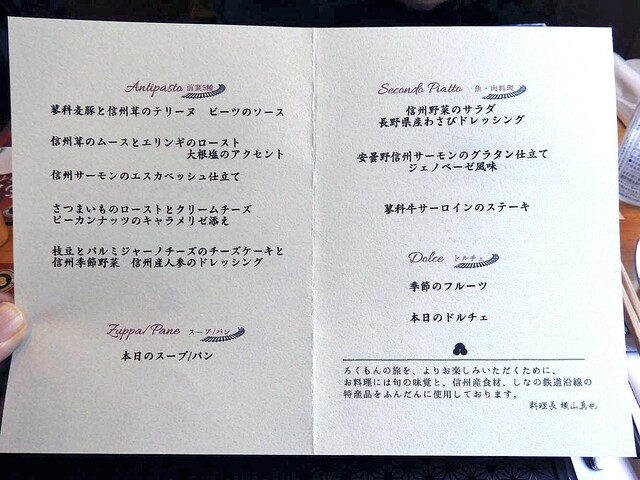 Antipasto 前菜5種
蓼科麦豚と信州茸のテリーヌ　ビーツのソース
信州茸のムースとエリンギのロースト
大根塩のアクセント
信州サーモンのエスカベッシュ仕立て
さつまいものローストとクリームチーズ
ピーカンナッツのキャラメリゼ添え
枝豆とパルミジャーノチーズのチーズケーキと
信州季節野菜　信州産人参のドレッシング
Zuppa/Pane スープ/パン
本日のスープ/パン
Secondo Piatto 魚・肉料理
信州野菜のサラダ
長野県産わさびドレッシング
安曇野信州サーモンのグラタン仕立て
ジェノベーゼ風味
蓼科牛サーロインのステーキ
Dolce ドルチェ
季節のフルーツ
本日のドルチェ
ろくもんの旅を、よりお楽しみいただくために、
お料理には旬の味覚と、信州産食材、しなの鉄道沿線の
特産品をふんだんに使用しております。
料理長 横山真也